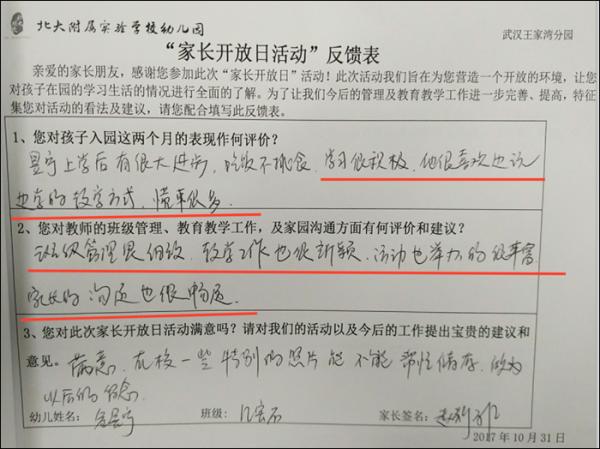 北大附属实验学校幼儿园
武汉王家湾分园
“家长开放日活动”反馈表
亲爱的家长朋友，感谢您参加此次“家长开放日”活动！此次活动我们旨在为您营造一个开放的环境，让您
对孩子在园的学习生活的情况进行全面的了解。为了让我们今后的管理及教育教学工作进一步完善、提高，特征
集您对活动的看法及建议，请您配合填写此反馈表。
1、您对孩子入园这两个月的表现作何评价？
上学后有很大进步，吃饭不挑食，学习很积极，他很喜欢
的教学方式，懂事很多
2、您对教师的班级管理、教育教学工作，及家园沟通方面有何评价和建议？
班级管理很细致，教学工作也很新颖，活动也举办的很丰富
家长的沟通也很畅通。
3、您对此次家长开放日活动满意吗？请对我们的活动以及今后的工作提出宝贵的建议和
意见。 满意，在校一些特别的照片能不能帮忙储存，做为
以后的纪念
幼儿姓名： 班级： 家长签名：
2017 年 10 月 31 日